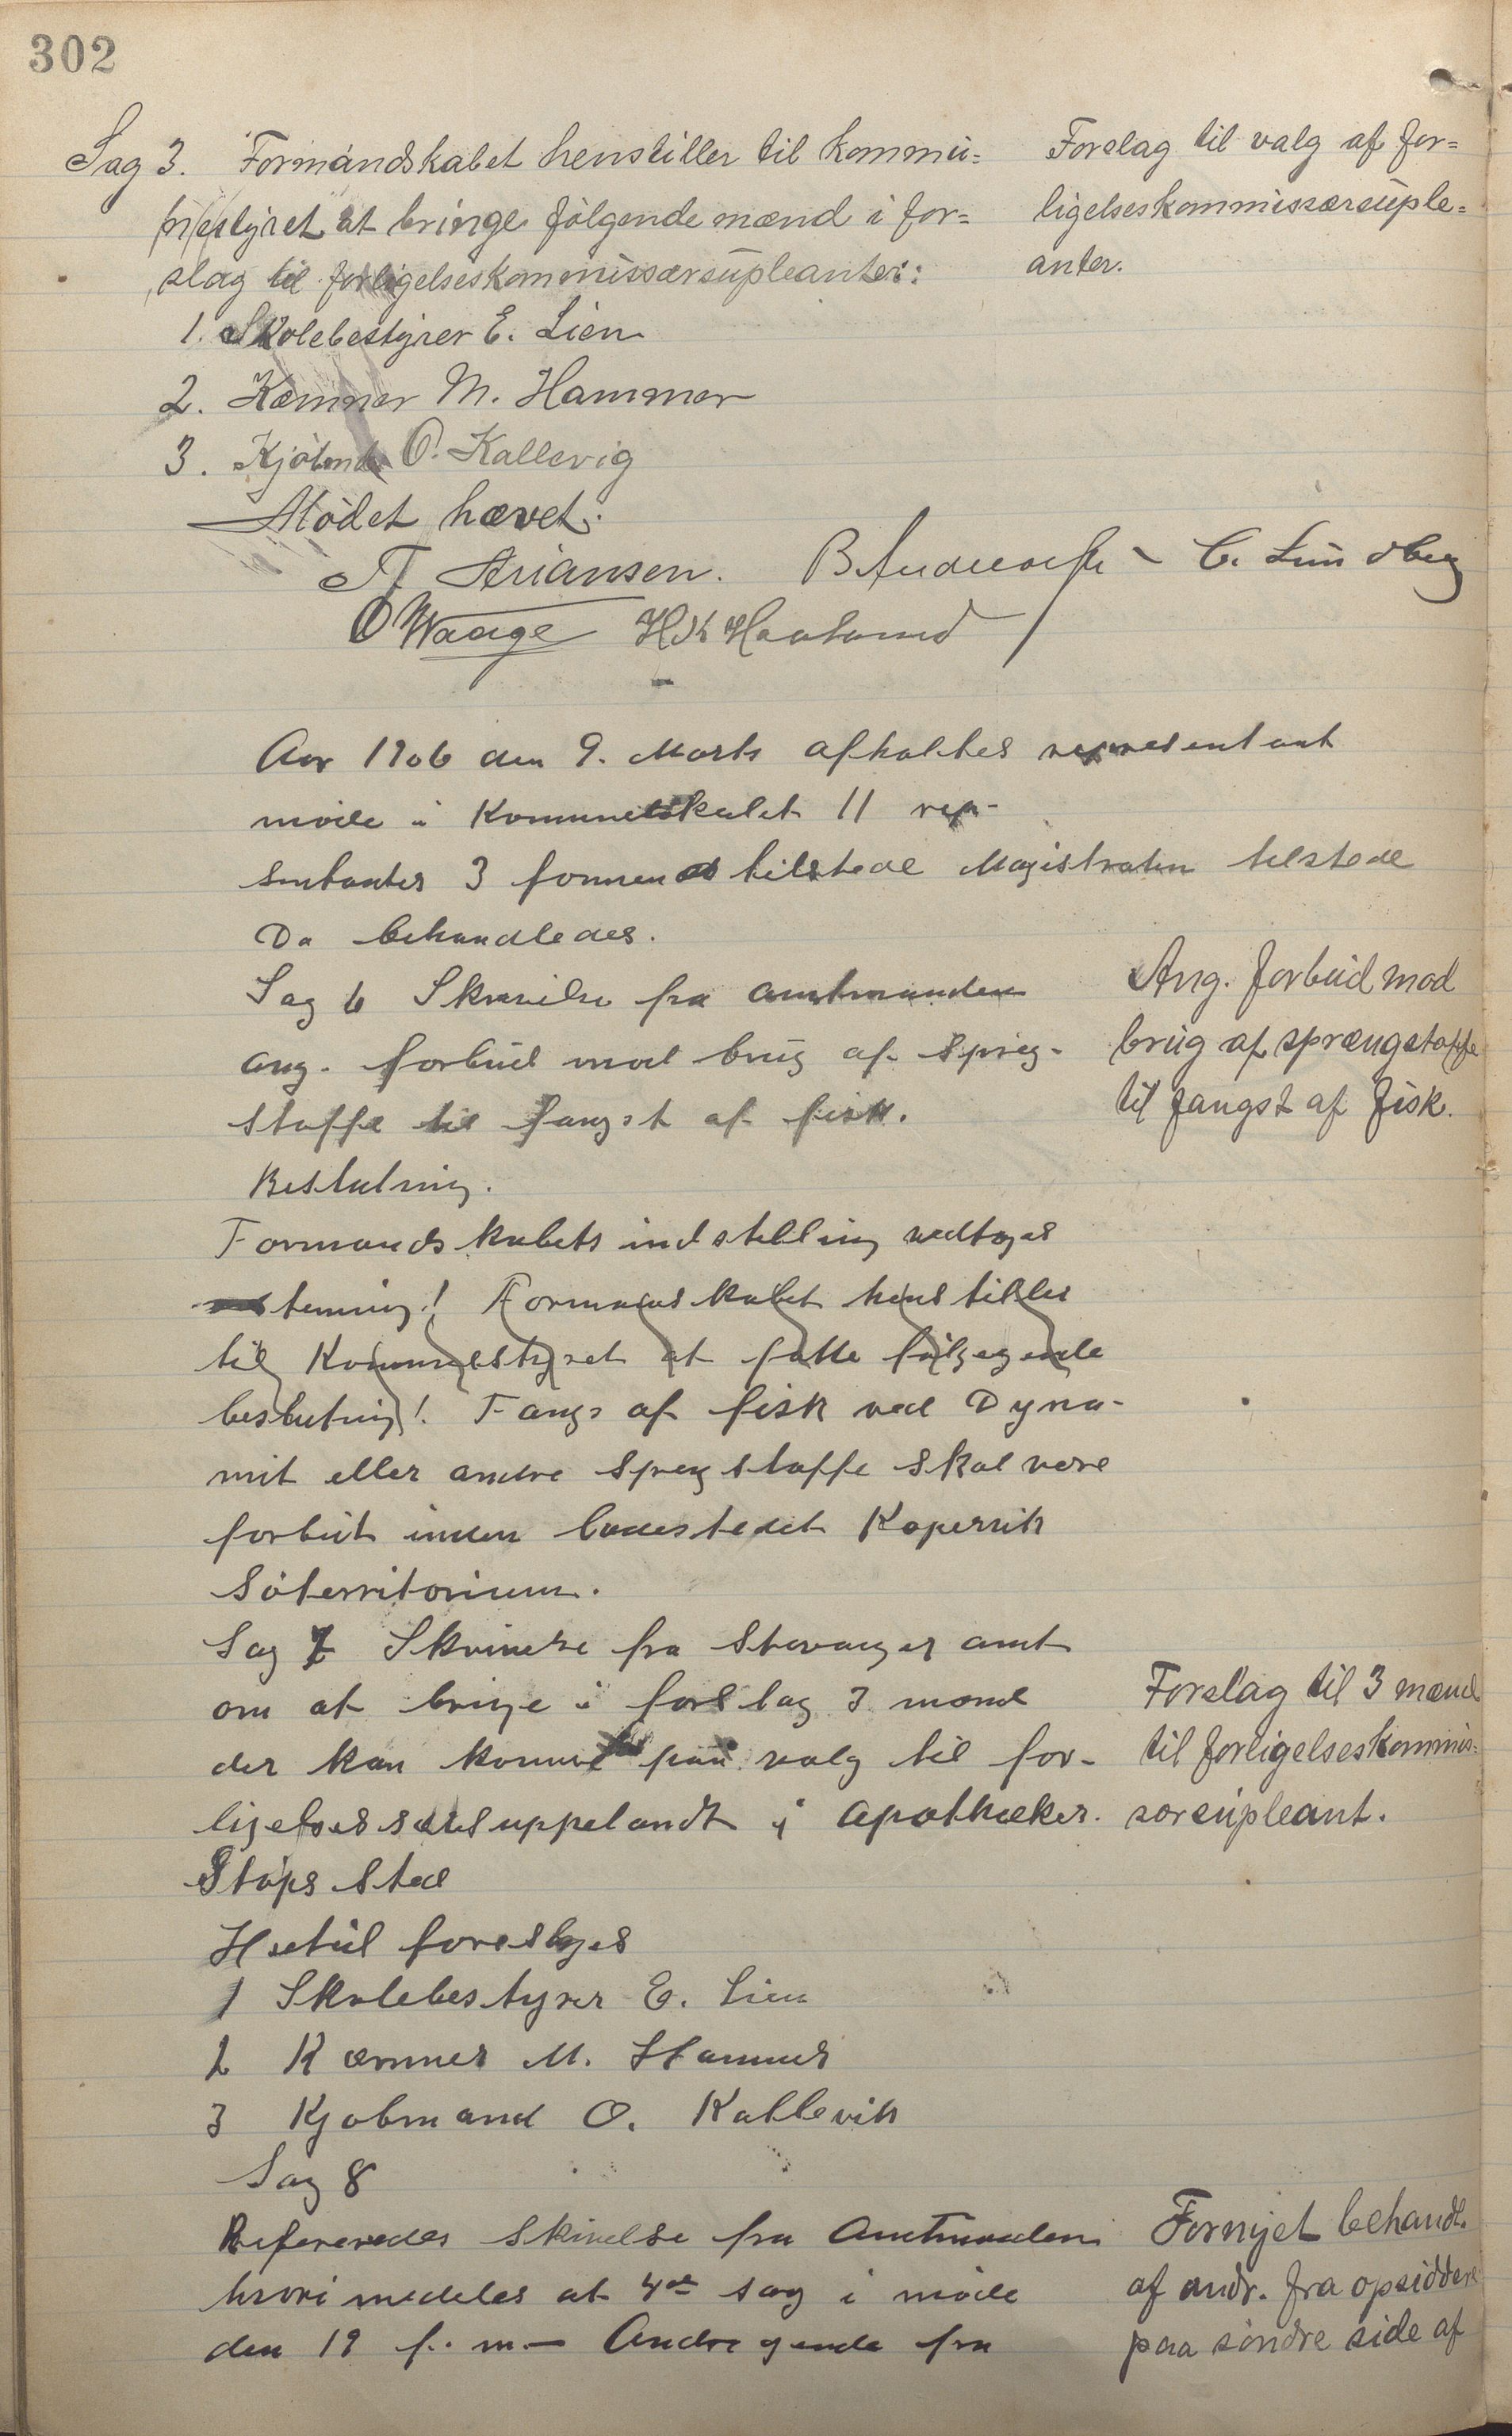 302
Sag 3. Formandskabet henstiller til kommu=
nestyret at bringe følgende mænd i for=
slag til forligelseskommissærsupleanter:
1. Skolebestyrer E. Lien
2. Kæmner M. Hammer
3. Kjøbmd. O. Kallevig
Mødet hævet.
Forslag til valg af for=
ligelseskommissærsuple=
anter.
T Ariansen. B Andreassen C. Lundberg
O Waage H
Aar 1906 den 9. Marts afholdtes representant
møde i Kommunelokalet 11 rep-
sentanter 3 formend tilstede Magistraten tilstede
Da behandledes.
Sag 6 Skrivelse fra amtmanden
ang. forbud mod brug af spreg-
stoffe til fangst af fisk.
Beslutning.
Ang. forbud mod
brug af sprængstoffe
til fangst af fisk.
Formandskabets indstilling vedtages
temmig! Formandskabet henstiller
til Kommunestyret at fatte følgegende
beslutning! Fangs af fisk ved Dyna-
mit eller andre spregstoffe skal være
forbudt inden ladestedet Kopervik
søterritorium.
Sag 7 Skrivelse fra Stavanger amt
om at bringe i forslag 3 mænd
der kan komme paa valg til for-
ligelsessærsuppelandt i Apotheker
Støps sted
Forslag til 3 mænd
til forligelseskommis=
sørsupleant.
Hertil foreslages
1 Skolebestyrer E. Lien
2 Kæmner M. Hammer
3 Kjøbmand O. Kallevik
Sag 8
Refereredes skrivelse fra Amtmanden
hvori medeles at 4de sag i møde
den 19 f. m. Andragende fra
Fornyet behandl.
af andr. fra opsiddere
paa søndre side af